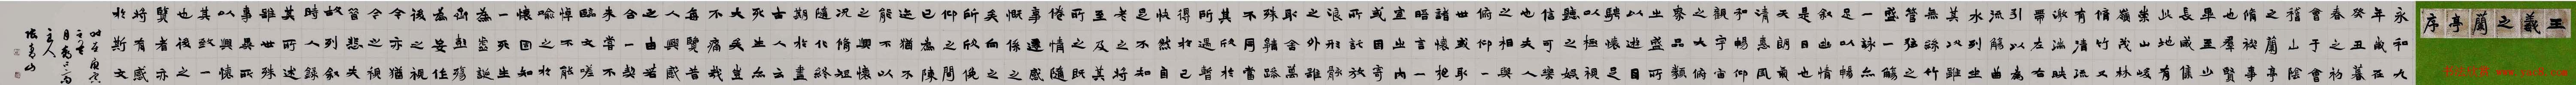 王羲之蘭亭序
永和九
年歲在
癸丑暮
春之初
會于會
稽山陰
之蘭亭
脩禊事
也羣賢
畢至少
長咸集
此地有
崇山峻
嶺茂林
脩竹又
有清流
激湍映
帶左右
引以為
流觴曲
水列坐
其次雖
無絲竹
管弦之
盛一觴
一詠亦
足以暢
敘幽情
是日也
天朗氣
清惠風
和暢仰
觀宇宙
之大俯
察品類
之盛所
以遊目
騁懷足
以極視
聽之娛
信可樂
也夫人
之相與
俯仰一
世或取
諸懷抱
晤言一
室之內
或因寄
所託放
浪形骸
之外雖
取舍萬
殊靜躁
不同當
其欣於
所遇暫
得於己
快然自
足不知
老之將
至及其
所之既
倦情隨
事遷感
慨係之
矣向之
所欣俛
仰之間
已為陳
迹猶不
能不以
之興懷
況脩短
隨化終
期於盡
古人云
死生亦
大矣豈
不痛哉
每覽昔
人興感
之由若
合一契
未嘗不
臨文嗟
悼不能
喻之於
懷固知
一死生
為虛誕
齊彭殤
為妄作
後之視
今亦猶
今之視
昔悲夫
故列敘
時人錄
其所述
雖世殊
事異所
以興懷
其致一
也後之
覽者亦
將有感
於斯文